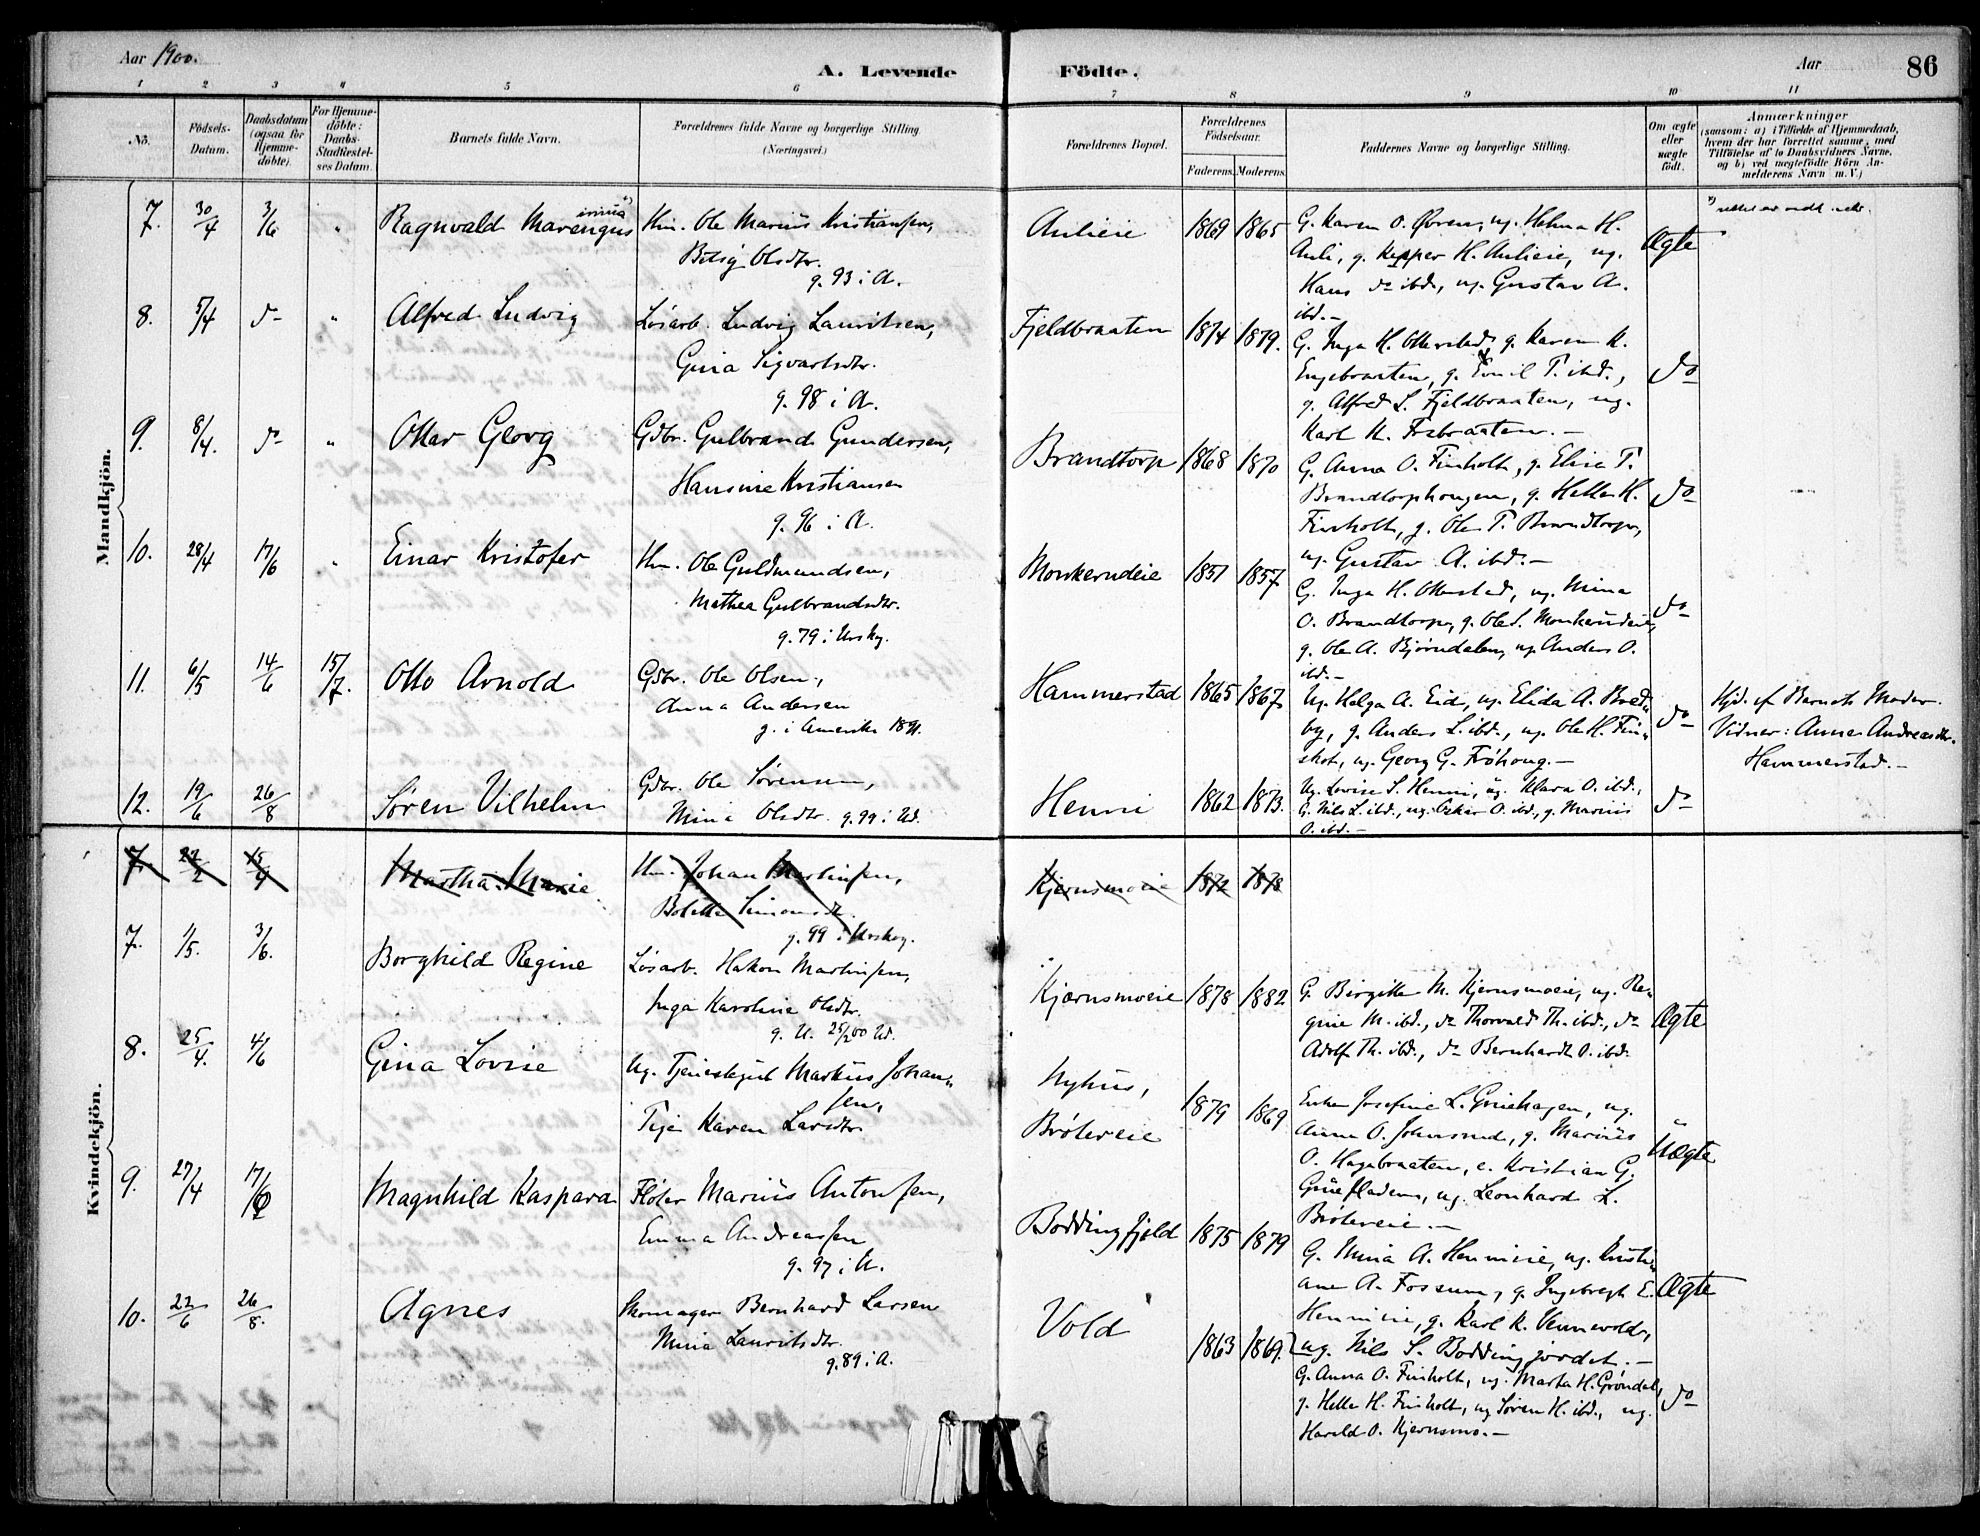 Aar 1900.
A. Levende Födte.
Aar
86
1 2 3 4 5 6 7 8 9 10 11
No.
Födsels-Datum.
Daabsdatum (ogsaa for Hjemme-döbte).
For Hjemme-döbte: Daabs-Stadfæstel-ses Datum.
Barnets fulde Navn.
Forældrenes fulde Navne og borgerlige Stilling. (Næringsvei.)
Forældrenes Bopæl.
Forældrenes Födselsaar.
Faderens. Moderens.
Faddernes Navne og borgerlige Stilling.
Om ægte eller uægte födt.
Anmærkninger
(saasom: a) i Tilfælde af Hjemmedaab,
hvem der har forrettet samme, med
Tilföielse af to Daabsvidners Navne,
og b) ved uægtefödte Börn An-
melderens Navn m. V.)
Mandkjön.
7. 30/4 3/6 " Ragnvald Marengus Hm. Ole Marius Kristiansen, Aulieie 1869 1865 G. Karen O. Øvren, ug. Helma H. Ægte
Betsy Olsdtr. Auli, g. Kasper H. Aulieie, ug.
g. 93 i A. Hans do ibd., ug. Gustav A.
ibd. –
8. 5/4 do " Alfred Ludvig Løsarb. Ludvig Lauritsen, Fjeldbraaten 1874 1879. G. Inga H. Ollerstad, g. Karen K.
Gina Sigvartsdtr. Engebraaten, g. Emil T. ibd., do
g. 98 i A. g. Alfred L. Fjeldbraaten, ug.
Karl K. –
9. 8/4. do " Ottar Georg Gdbr. Gulbrand Gundersen, Brandtorp 1868 1870 G. Anna O. Finholt, g. Elise T.
Hansine Kristiansen Brandtorphaugen, g. Helle H. do
g. 96 i A. Finholt, g. Ole T. Brandtorp,
ug. Gustav A. ibd. –
10. 28/4 17/6 " Einar Kristofer Hm. Ole Guldmundsen, Monkerudeie 1851 1857 G. Inga H. Ollerstad, ug. Mina do
Mathea Gulbrandsdtr. O. Brandtorp, g. Ole S. Monkerudeie,
g. 79 i Ursky. g. Ole A. Bjørndalen, ug. Anders O.
ibd. –
11. 6/5 14/6 15/7. Otto Arnold Gdbr. Ole Olsen, Hammerstad 1865 1867 Ug. Helga A. Eid, ug. Elida A. do Hjd. af Barnets Moder.
Anna Andersen by, g. Anders L. ibd., ug. Ole H. Fin- Vidner: Anne Andreasdtr.
g. i Amerika 1891. ug. Georg G. Frøhoug. – Hammerstad. –
12. 19/6 26/8 Søren Vilhelm Gdbr. Ole Sørensen, Henni 1862 1873. Ug. Lovise S. Henni, ug. Klara O. ibd., do
Mina Olsdtr. g. 99 i Ud. G. Nils L. ibd., ug. Oskar O. ibd., g. Marius
O. ibd. –
Kvindekjön.
7. 22/2 15/4 Martha Marie Hm. Johan Martinsen, Kjernsmoeie 1872 1878
Bolette Simensdtr.
g. 99 i Urskog.
7. 1/5. 3/6. Borghild Regine Løsarb. Hakon Martinsen, Kjernsmoeie 1878 1882 G. Birgitte M. Kjernsmoeie, ug. Re- Ægte
Inga Karoline Olsdtr. gine M. ibd., do Thorvald Th. ibd., do
g. U. 25/2 00 Ud. Adolf Th. ibd., do Bernhardt O. ibd.
8. 25/4. 4/6 Gina Lovise Ug. Tjenestegut Markus Johan- Nyhus, 1879 1869 Enke Josefine L. Griniehagen, ug. Uægte
sen, Anne O. g. Marius
Pige Karen Larsdtr. Brøtereie O. Hagebraaten, e. Kristian G.
ug. Leonhard L.
Brøtereie. –
9. 27/4 17/6 Magnhild Kaspara Fløter Marius Antonsen, Boddingfjeld 1875 1879 G. Mina A. Hennieie, ug. Kristi-
Emma Andreassen ane A. Fossum, g. Ingebregt E. Ægte
g. 97 i A. Hennieie, g. Karl K. Vennevold,
ug. Nils S. Boddingjordet. –
10. 22/6 26/8. Agnes Skomager Bernhard Larsen Vold 1863 1869. G. Anna O. Finholt, ug. Marta H. Grøndal, do
Mina Lauritsdtr. g. Helle H. Finholt, ug. Søren H. ibd., ug.
g. 89 i A. Harald O. Kjernsmo. –